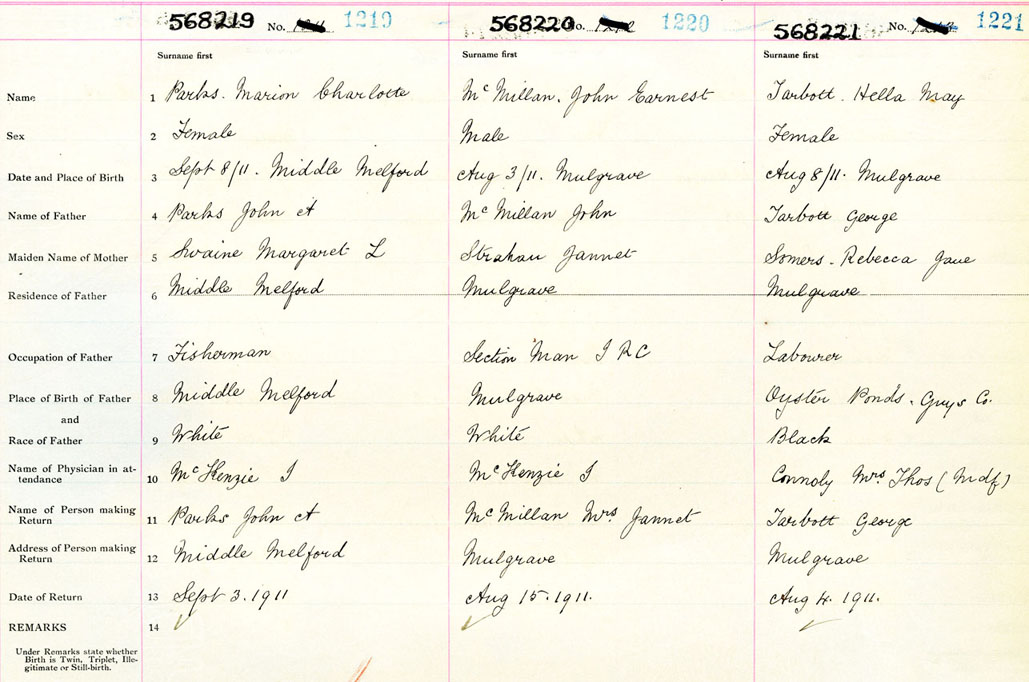 568219 No. 1219 568220 No. 1220 568221 No. 1221
Surname first Surname first Surname first
Name 1 Parks. Marion Charlotte McMillan, John Earnest Tarbott. Hella May
Sex 2 Female Male Female
Date and Place of Birth 3 Sept 8/11. Middle Melford Aug 3/11. Mulgrave Aug 8/11. Mulgrave
Name of Father 4 Parks John A McMillan John Tarbott George
Maiden Name of Mother 5 Swaine Margaret L Strahan Jannet Somers. Rebecca Jane
Residence of Father 6 Middle Melford Mulgrave Mulgrave
Occupation of Father 7 Fisherman Section Man I R C Labourer
Place of Birth of Father 8 Middle Melford Mulgrave Oyster Ponds. Guys Co.
and
Race of Father 9 White White Black
Name of Physician in at-
tendance 10 McKenzie J McKenzie J Connoly Mrs. Thos (Mdf)
Name of Person making
Return 11 Parks John A McMillan Mrs Jannet Tarbott George
Address of Person making
Return 12 Middle Melford Mulgrave Mulgrave
Date of Return 13 Sept 3. 1911 Aug 15. 1911. Aug 4. 1911.
REMARKS 14
Under Remarks state whether
Birth is Twin, Triplet, Ille-
gitimate or Still-birth.